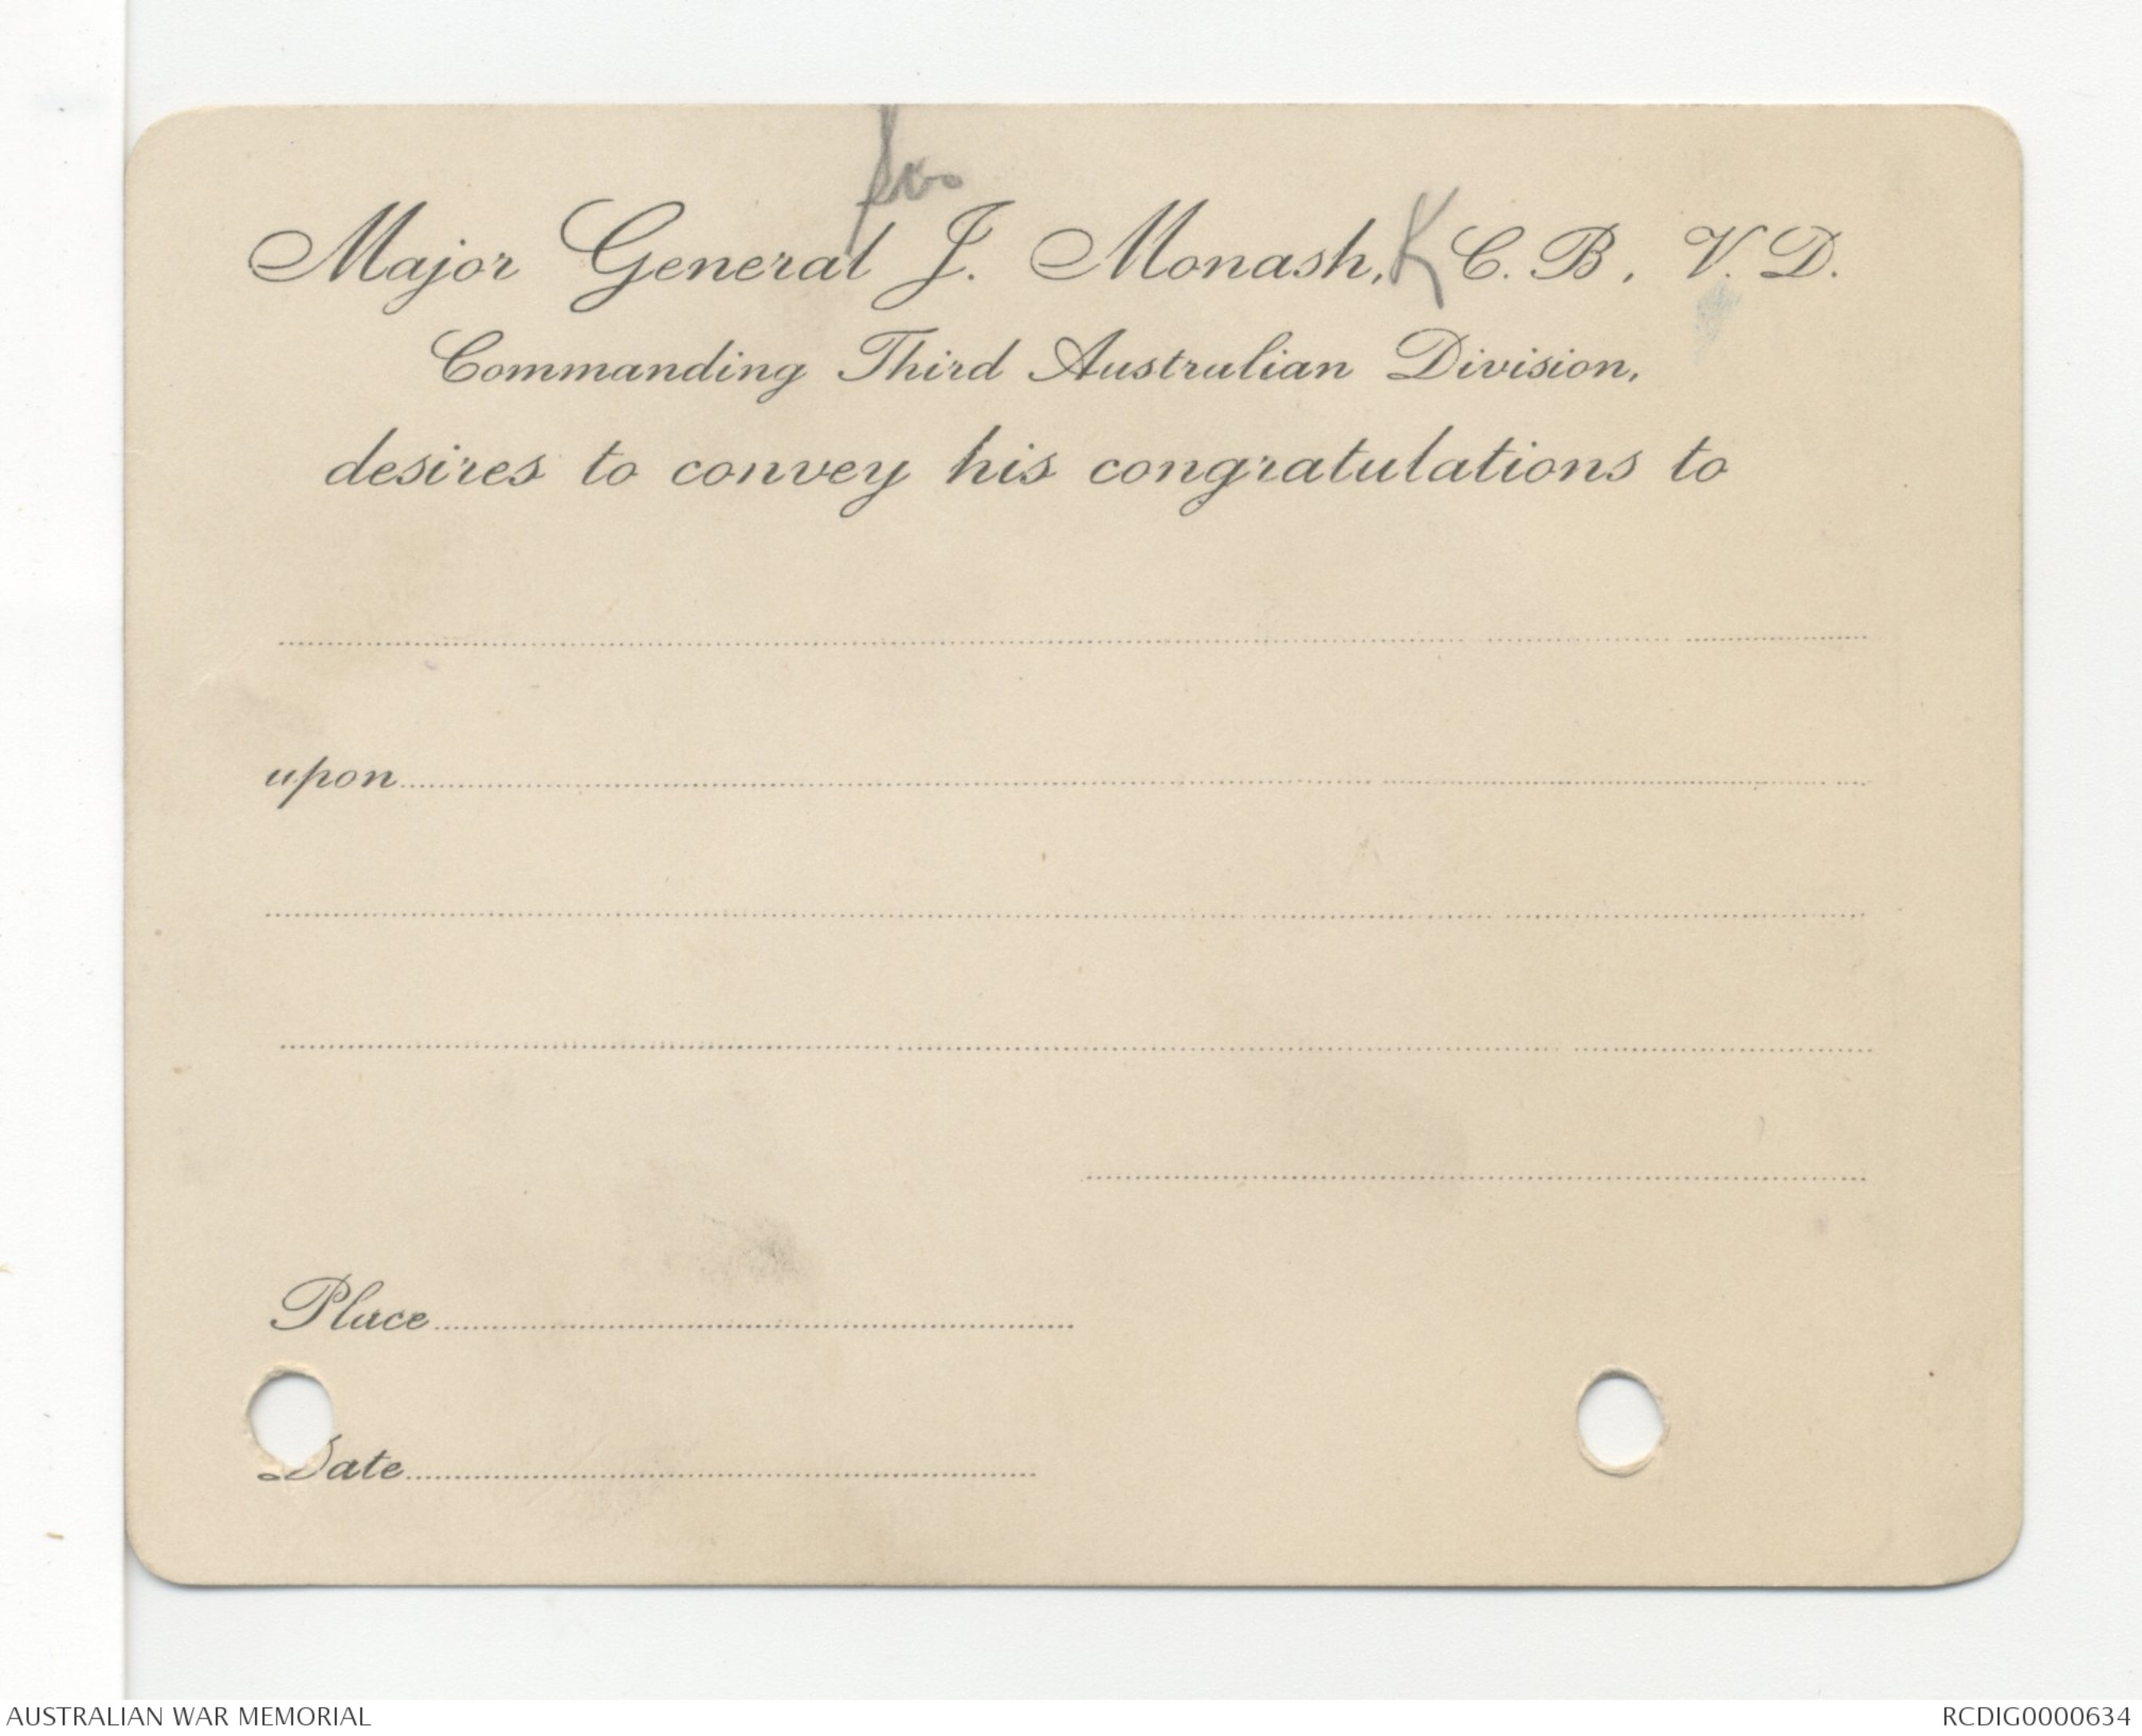 Major General J. Monash, K C. B, V. D.
Commanding Third Australian Division,
desires to convey his congratulations to
upon
Place
Date
AUSTRALIAN WAR MEMORIAL
RCDIG0000634